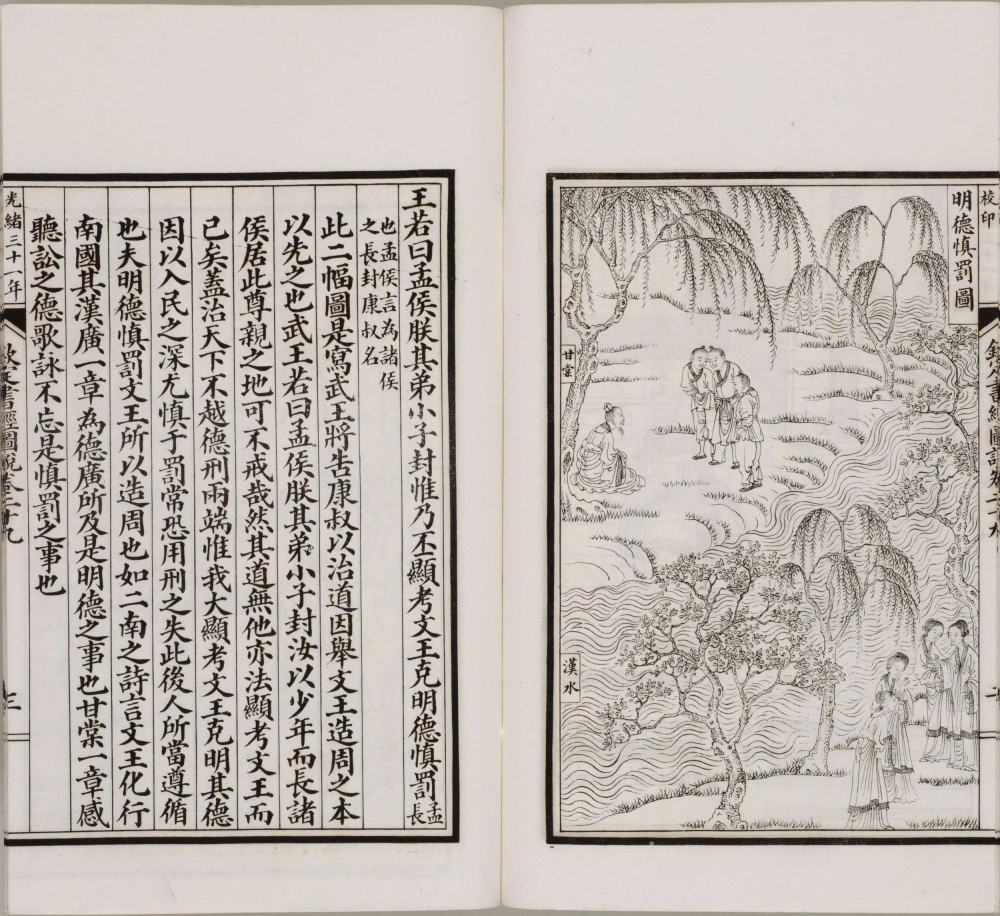 校印
明德慎罰圖
甘棠
漢水
王若曰孟侯朕其弟小子封惟乃丕顯考文王克明德慎罰孟長
也孟侯言為諸侯
之長封康叔名
此二幅圖是寫武王將告康叔以治道因舉文王造周之本
以先之也武王若曰孟侯朕其弟小子封汝以少年而長諸
侯居此尊親之地可不戒哉然其道無他亦法顯考文王而
已矣蓋治天下不越德刑兩端惟我大顯考文王克明其德
因以入民之深尤慎于罰常恐用刑之失此後人所當遵循
也夫明德慎罰文王所以造周也如二南之詩言文王化行
南國其漢廣一章為德廣所及是明德之事也甘棠一章感
聽訟之德歌詠不忘是慎罰之事也
光緒三十一年
三